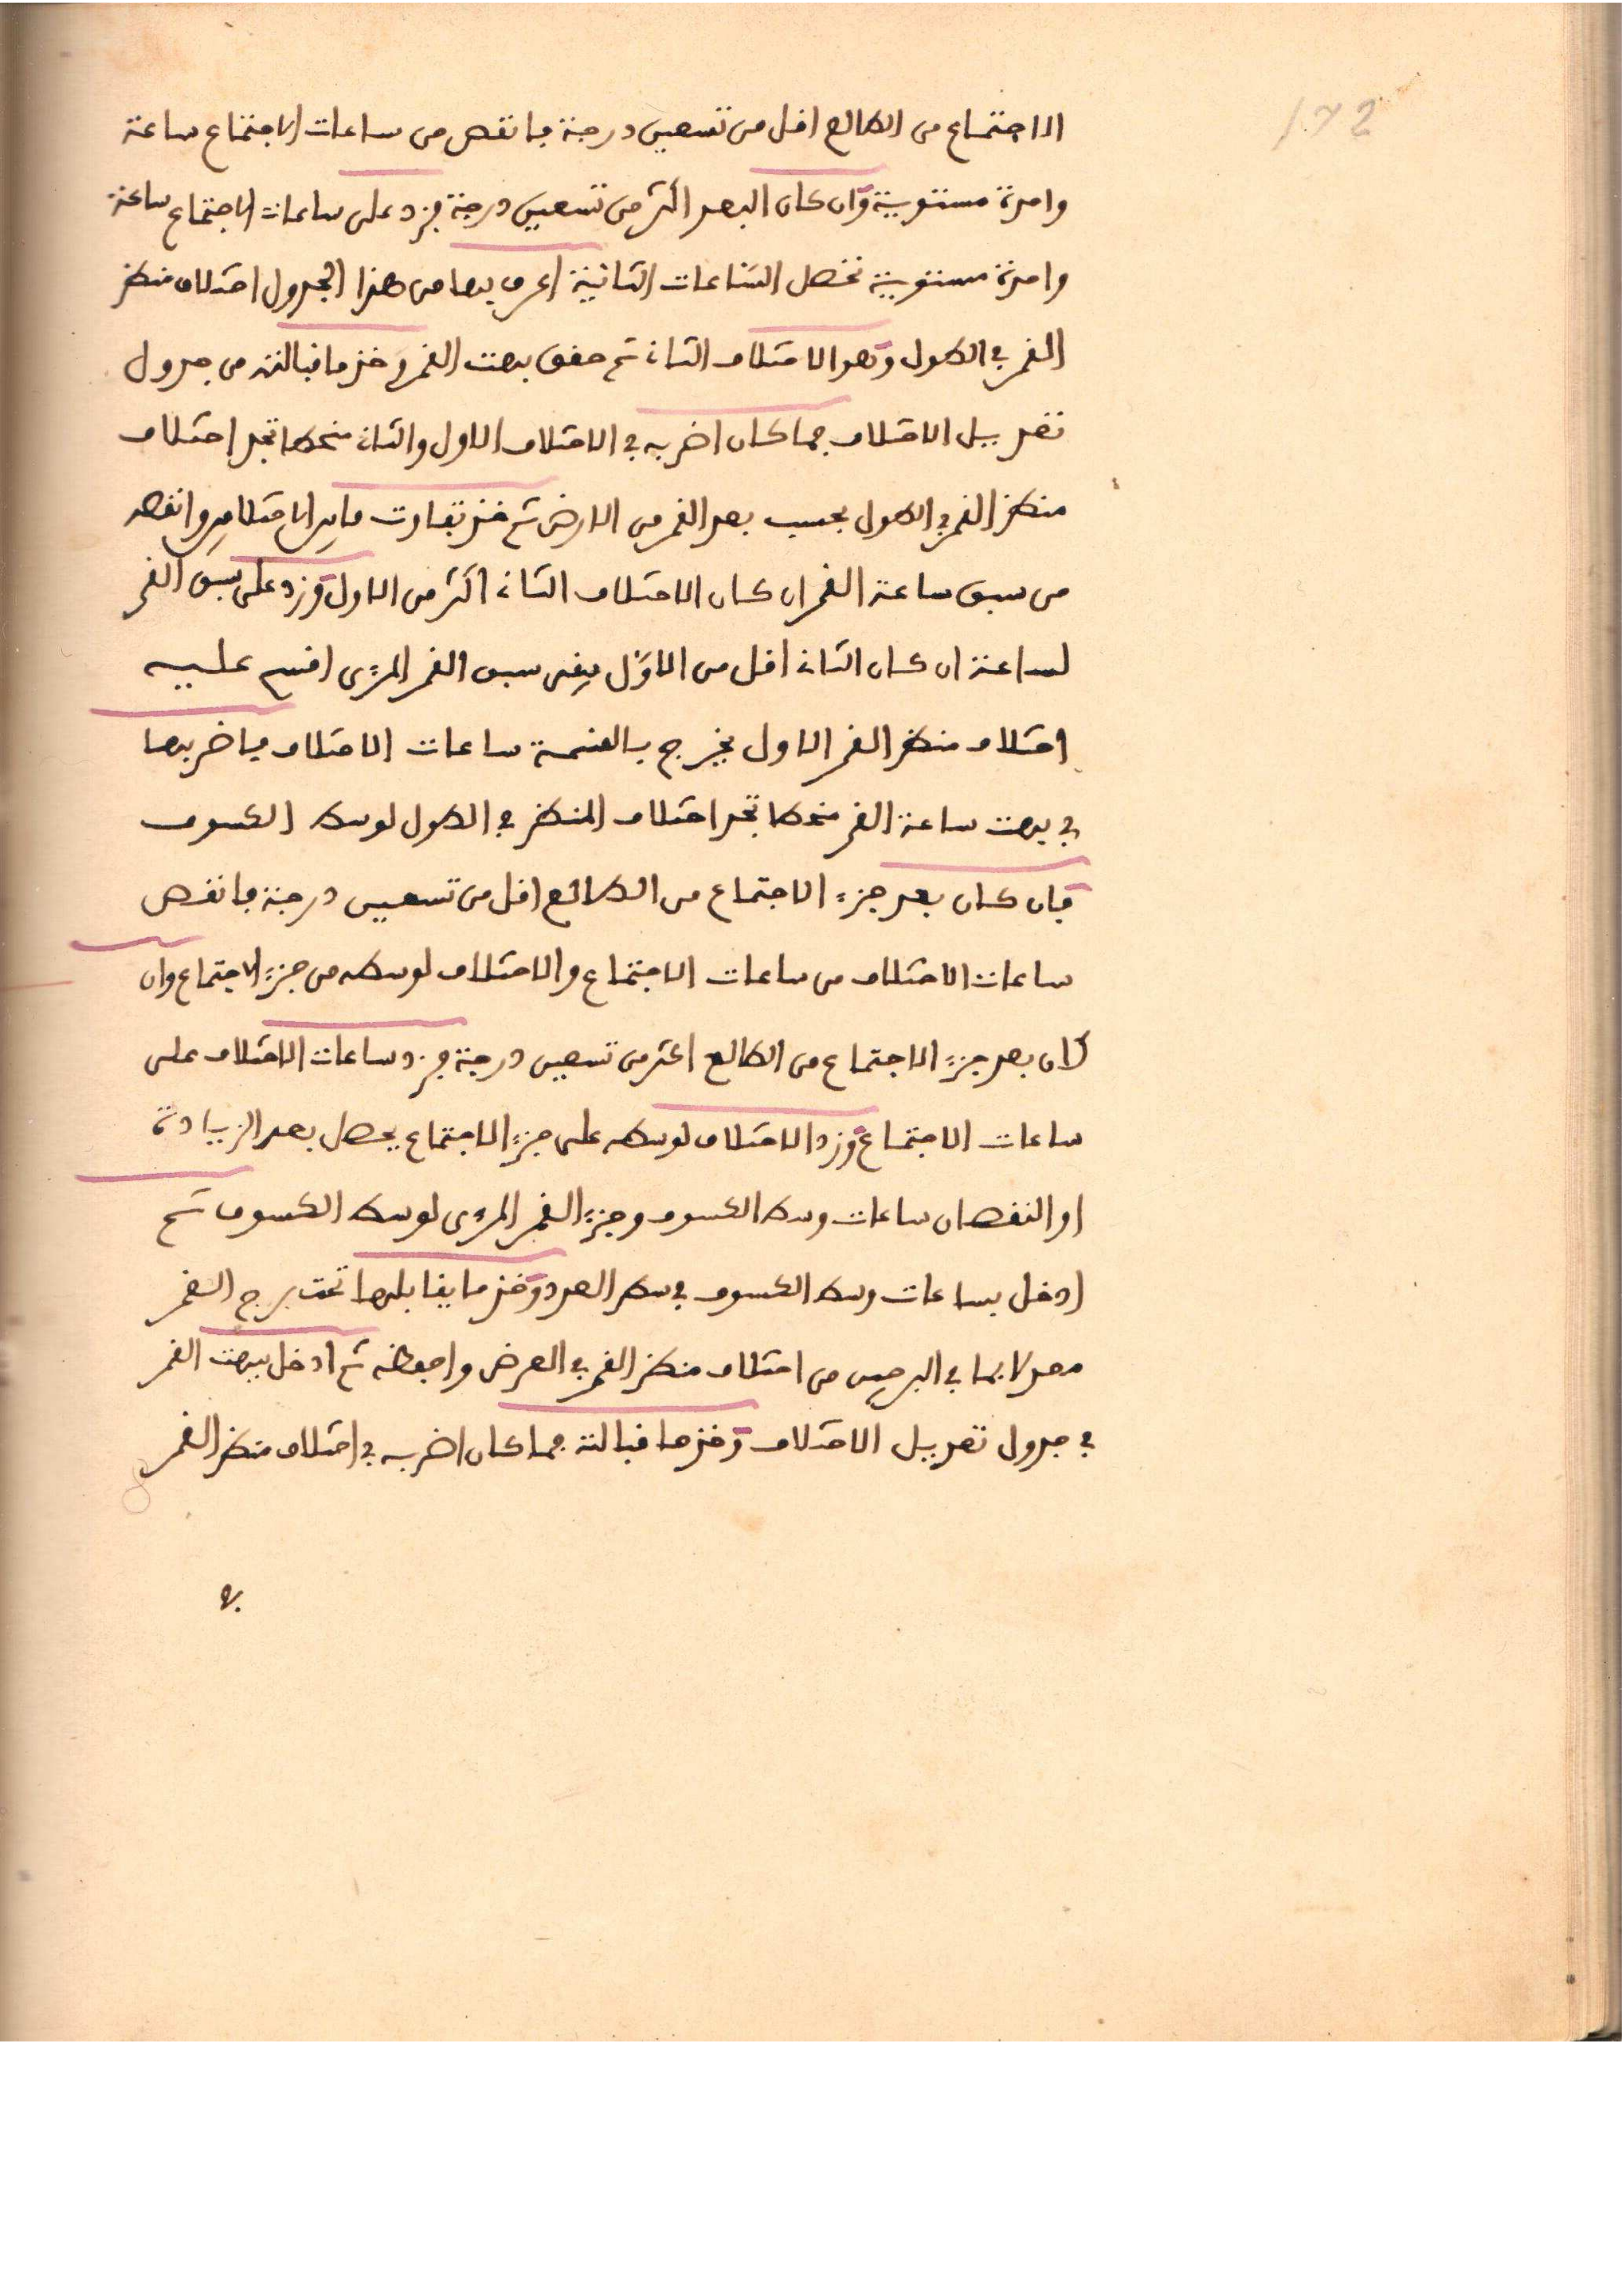 172
الاجتماع من الطالع اقل من تسعين درجة فانقص من ساعات الاجتماع ساعة
واحدة مستوية وان كان البعد اكثر من تسعين درجة فزد على ساعات الاجتماع ساعة
واحدة مستوية تحصل الساعات الثانية اعرف بها من هذا الجدول اختلاف منظر
القمر في الطول وهو الاختلاف الثاني ثم حقق بهت القمر وخذ ما قبالته من جدول
تعديل الاختلاف فما كان اضربه في الاختلاف الاول والثاني منحطا تجد اختلاف
منظر القمر في الطول بحسب بعد القمر من الارض ثم خذ تفاوت ما بين الاختلافين وانقصه
من سبق ساعة القمر ان كان الاختلاف الثاني اكثر من الاول وزد على سبق القمر
لساعة ان كان الثاني اقل من الاوّل يبقى سبق القمر المرءى اقسم عليه
اختلاف منظر القمر الاول يخرج بالقسمة ساعات الاختلاف فاضربها
في بهت ساعة القمر منحطا تجد اختلاف المنظر في الطول لوسط الكسوف
فان كان بعد جزء الاجتماع من الطالع اقل من تسعين درجة فانقص
ساعات الاختلاف من ساعات الاجتماع والاختلاف لوسطه من جزء الاجتماع وان
كان بعد جزء الاجتماع من الطالع اكثر من تسعين درجة فزد ساعات الاختلاف على
ساعات الاجتماع وزد الاختلاف لوسطه على جزء الاجتماع يحصل بعد الزيادة
او النقصان ساعات وسط الكسوف وجزء القمر المرءى لوسط الكسوف ثم
ادخل بساعات وسط الكسوف في سطر العدد وخذ ما يقابلها تحت برج القمر
معدلا بما في البرجين من اختلاف منظر القمر في العرض واحفظه ثم ادخل ببهت القمر
في جدول تعديل الاختلاف وخذ ما قبالته فما كان اضربه في اختلاف منظر القمر